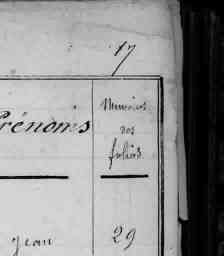 17
Prénoms
Numéros
des
folios
Jean
29